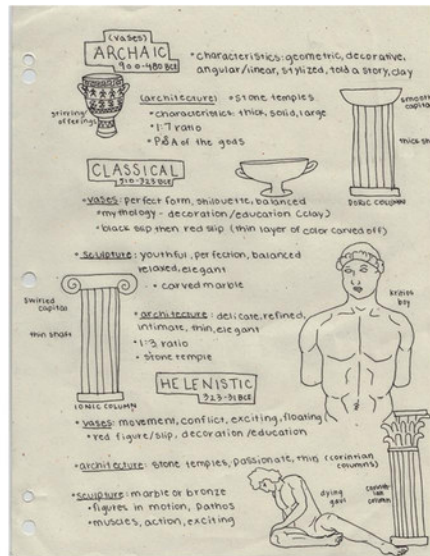 (vases)
ARCHAIC
900-480 BCE
• characteristics: geometric, decorative,
angular/linear, stylized, told a story, clay
storing/
offerings
(architecture) • stone temples
• characteristics: thick, solid, large
• 1:7 ratio
• of the gods
smooth
capital
thick sh
DORIC COLUMN
CLASSICAL
510-323 BCE
• vases: perfect form, shilouette, balanced
• mythology - decoration/education (clay)
• black slip then red slip (thin layer of color carved off)
• sculpture: youthful, perfection, balanced
relaxed, elegant
• carved marble
swirled
capital
thin shaft
IONIC COLUMN
• architecture: delicate, refined,
intimate, thin, elegant
• 1:3 ratio
• stone temple
kritios
boy
HELENISTIC
323-31 BCE
• vases: movement, conflict, exciting, floating
• red figure/slip, decoration/education
• architecture: stone temples, passionate, thin (corintian
columns)
• sculpture: marble or bronze
• figures in motion, pathos
• muscles, action, exciting
dying
gaul
column